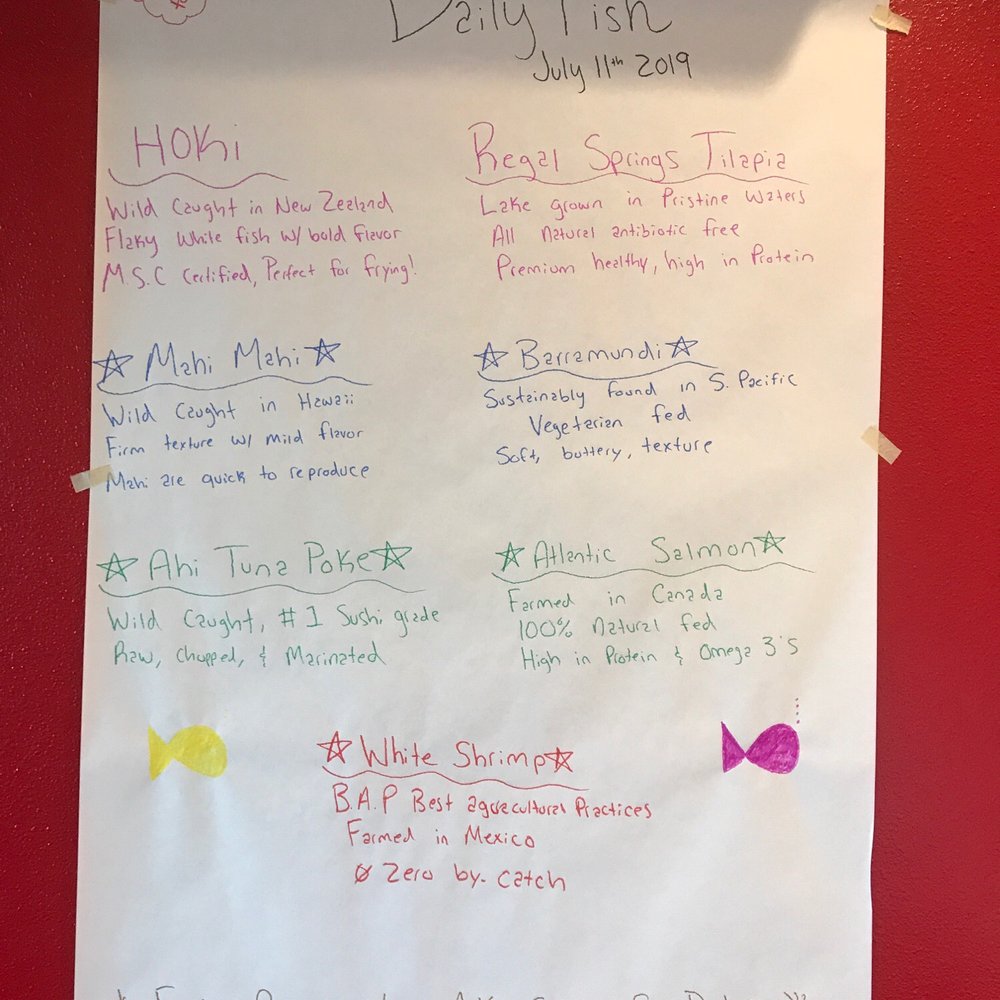 Daily Fish
July 11th 2019
HOKi
Wild Caught in New Zealand
Flaky White fish w/ bold flavor
M.S.C Certified, Perfect for frying!
Regal Springs Tilapia
Lake grown in Pristine Waters
All Natural antibiotic free
Premium healthy, high in Protein
☆ Mahi Mahi ☆
Wild Caught in Hawaii
Firm texture w/ mild flavor
Mahi are quick to reproduce
☆ Barramundi ☆
Sustainably found in S. Pacific
Vegetarian fed
Soft, buttery, texture
☆ Ahi Tuna Poke ☆
Wild Caught, #1 Sushi grade
Raw, Chopped, & Marinated
☆ Atlantic Salmon ☆
Farmed in Canada
100% Natural fed
High in Protein & Omega 3's
☆ White Shrimp ☆
B.A.P Best aguacultural Practices
Farmed in Mexico
0 Zero by-catch